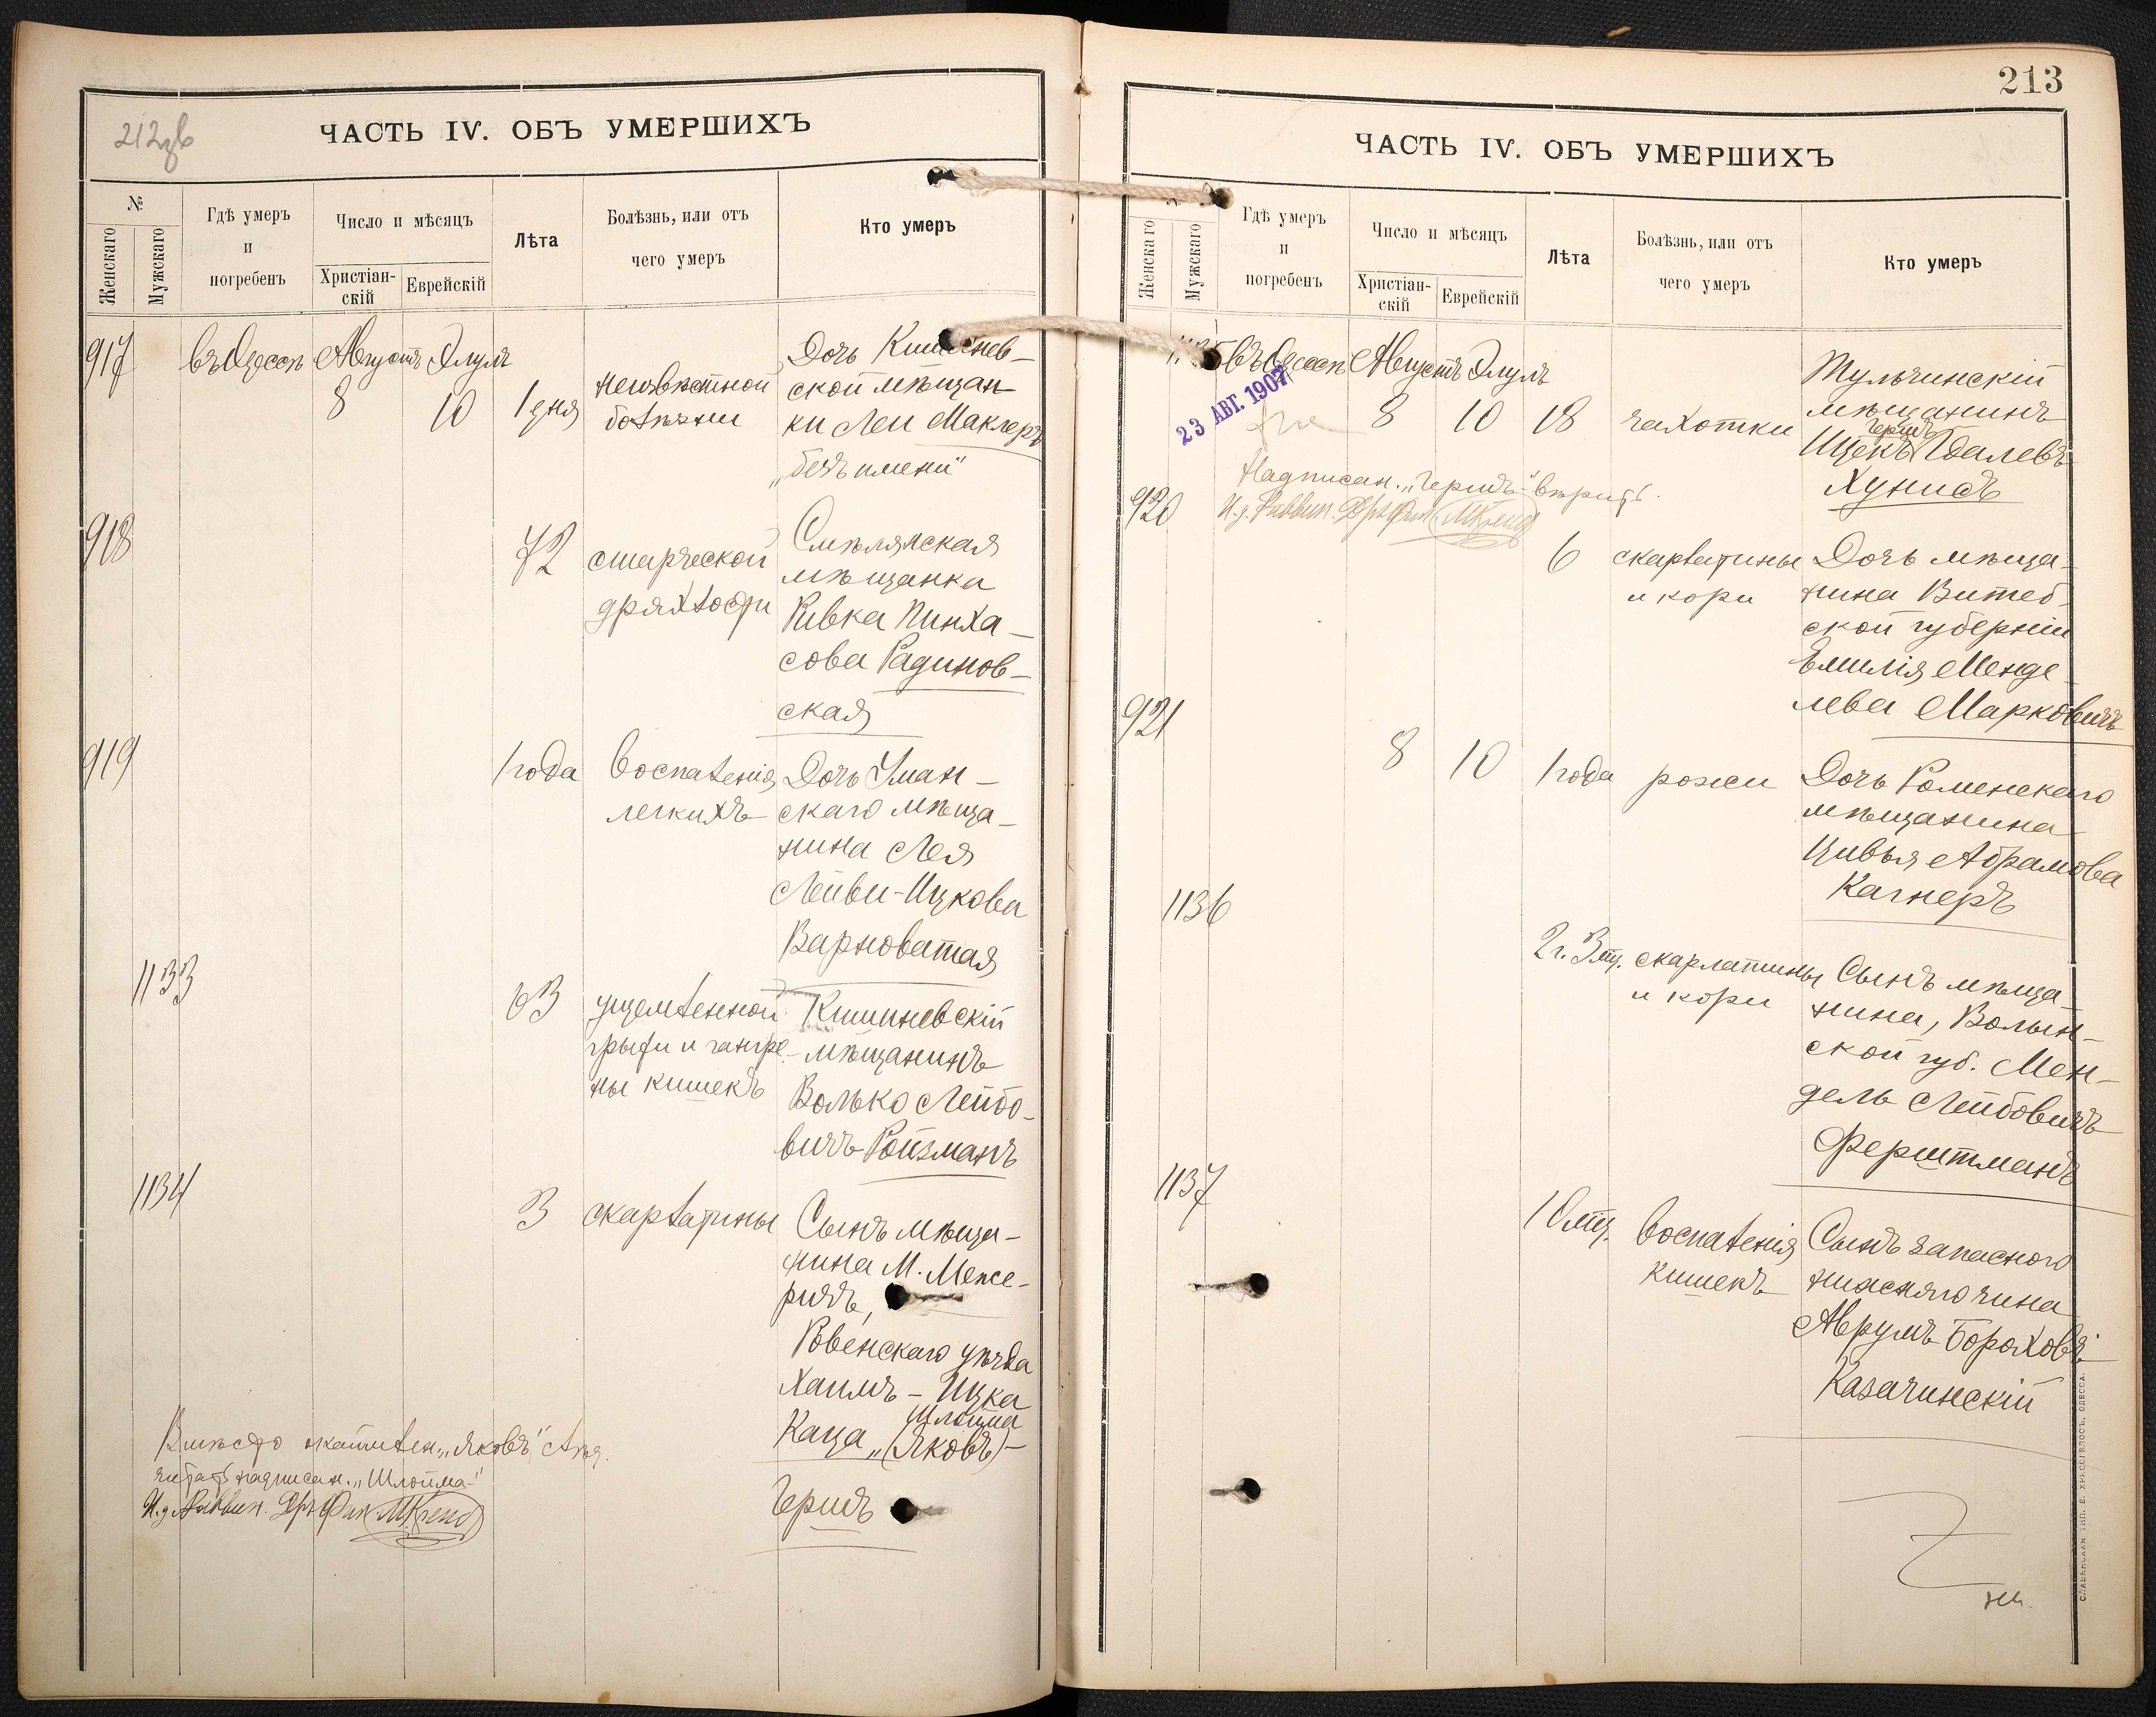 212 об
ЧАСТЬ IV. ОБЪ УМЕРШИХЪ
№
Женскаго
Мужскаго
Гдѣ умеръ
и
погребенъ
Число и мѣсяцъ
Христіан-
скій
Еврейскій
Лѣта
Болѣзнь, или отъ
чего умеръ
Кто умеръ
917
въ Одессѣ
Августъ
8
Элулъ
10
1 дня
неизвѣстной
болѣзни
Дочь Кишинев-
ской мѣщан-
ки Леи Маклеръ
„безъ имени"
918
72
старческой
дряхлости
Смѣлянская
мѣщанка
Ривка Пинха-
сова Радинов-
ская
919
1 года
воспаленія
легкихъ
Дочь Уман-
скаго мѣща-
нина Лея
Лейви-Ицкова
Варноватая
1133
63
ущемленной
грыжи и гангре-
ны кишекъ
Кишиневскій
мѣщанинъ
Волько Лейбо-
вичъ Ройзманъ
1134
3
скарлатины
Сынъ мѣща-
нина М. Меже-
ричъ,
Ровенскаго уѣзда
Хаимъ - Ицка
Шлойма
Каца „(Яковъ)-
Гершъ
Вмѣсто „Яковъ"
читать надписан. „Шлойма"
И.д. Раввин.
213
ЧАСТЬ IV. ОБЪ УМЕРШИХЪ
Женскаго
Мужскаго
Гдѣ умеръ
и
погребенъ
Число и мѣсяцъ
Христіан-
скій
Еврейскій
Лѣта
Болѣзнь, или отъ
чего умеръ
Кто умеръ
1135
въ Одессѣ
Августъ
8
Элулъ
10
18
чахотки
Тульчинскій
мѣщанинъ
Гершъ
Ицекъ Гдалевъ
Хунисъ
23 АВГ. 1907
Надписан. „Гершъ" вѣрить.
И.д. Раввин.
920
6
скарлатины
и кори
Дочь мѣща-
нина Витеб-
ской губерніи
Эмилія Менде-
лева Марковичъ
921
8
10
1 года
рожи
Дочь Роменскаго
мѣщанина
Цивья Абрамова
Кагнеръ
1136
2 г. 3 мц.
скарлатины
и кори
Сынъ мѣща-
нина, Волын-
ской губ. Мен-
дель Лейбовичъ
Ферштманъ
1137
10 мц.
воспаленія
кишекъ
Сынъ запасного
нижняго чина
Аврумъ Борохов.
Казачинскій
СЛАВЯНСКАЯ ТИП. Е. ХРИСОГЕЛОСЪ, ОДЕССА.